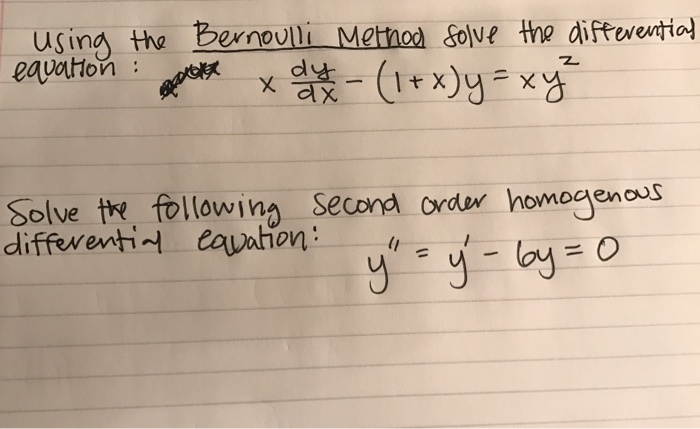 Using the Bernoulli Method solve the differential
equation : x dy/dx - (1+x)y = xy²
Solve the following second order homogenous
differential equation:
y'' = y' - 6y = 0